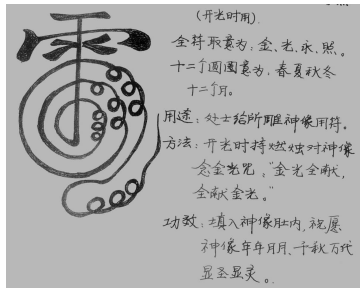 (开光时用).
全符取意为:金、光、永、照。
十二个圆圈意为,春夏秋冬
十二个月。
用途:处士给所雕神像用符。
方法:开光时持燃烛对神像
念金光咒。"金光全献,
全献金光。"
功效:填入神像肚内,祝愿
神像年年月月、千秋万代
显圣显灵。